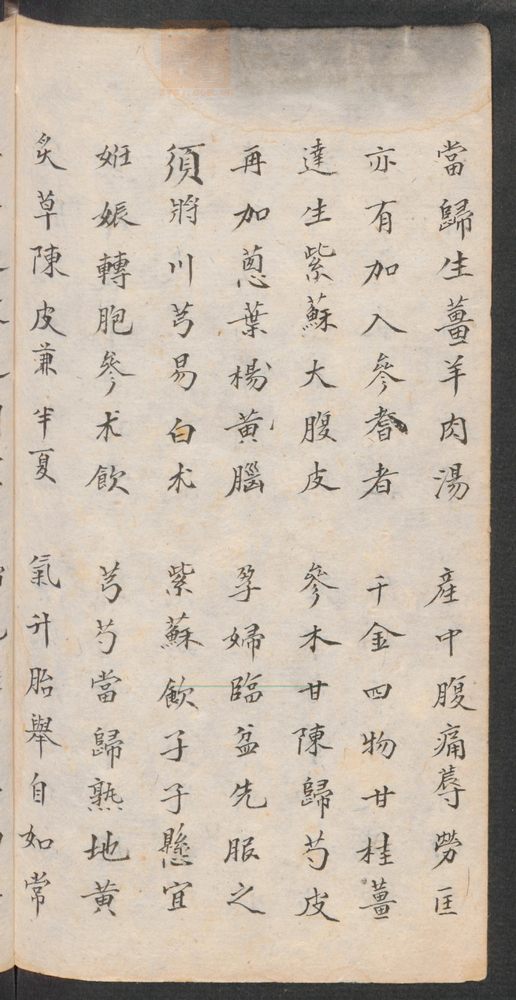 當歸生薑羊肉湯 產中腹痛蓐勞匡
亦有加入參耆者 千金四物甘桂薑
達生紫蘇大腹皮 參木甘陳歸芍皮
再加蔥葉楊黃腦 孕婦臨盆先服之
須將川芎易白朮 紫蘇飲子子懸宜
妊娠轉胞參朮飲 芎芍當歸熟地黃
炙草陳皮兼半夏 氣升胎舉自如常